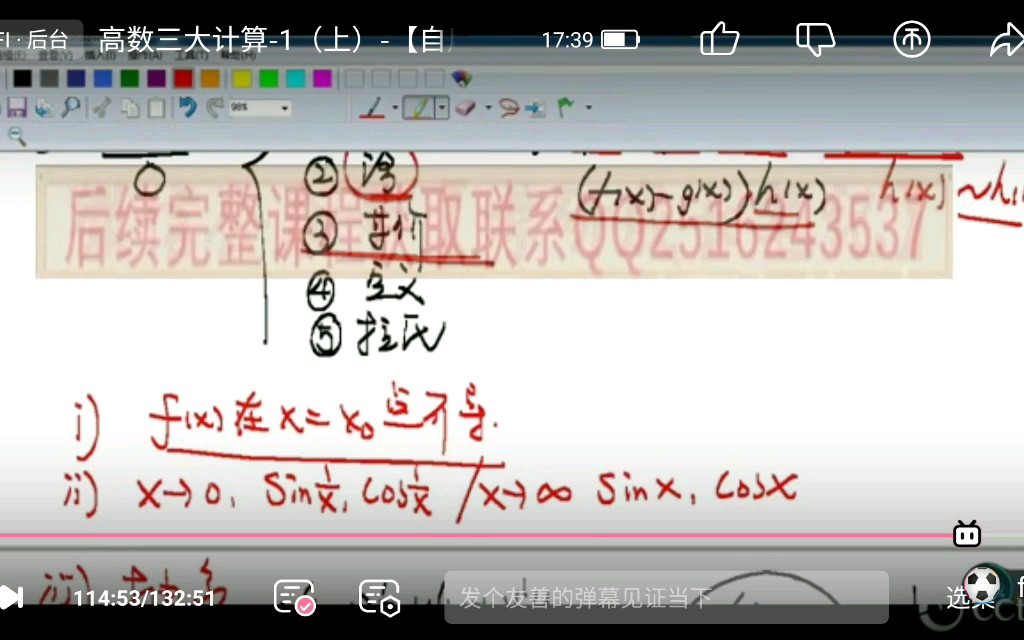 FI · 后台 高数三大计算-1（上）-【自 17:39
98%
0
② 洛 (f(x)-g(x))h(x) h(x) ~ h
③ 等价
后续完整课程 取联系QQ2516243537
④ 定义
⑤ 拉氏
i) f(x)在 x=x₀ 点不导.
ii) x→0, Sin 1/x, Cos 1/x / x→∞ Sinx, Cosx
iii)
114:53/132:51 发个友善的弹幕见证当下 选集